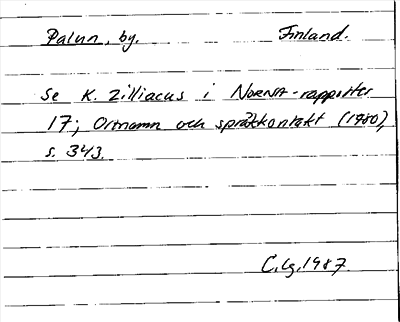 Palun, by. Finland.
Se K. Zilliacus i NORNA-rapporter
17; Ortnamn och språkkontakt (1980),
s. 343.
C.lg. 1987.